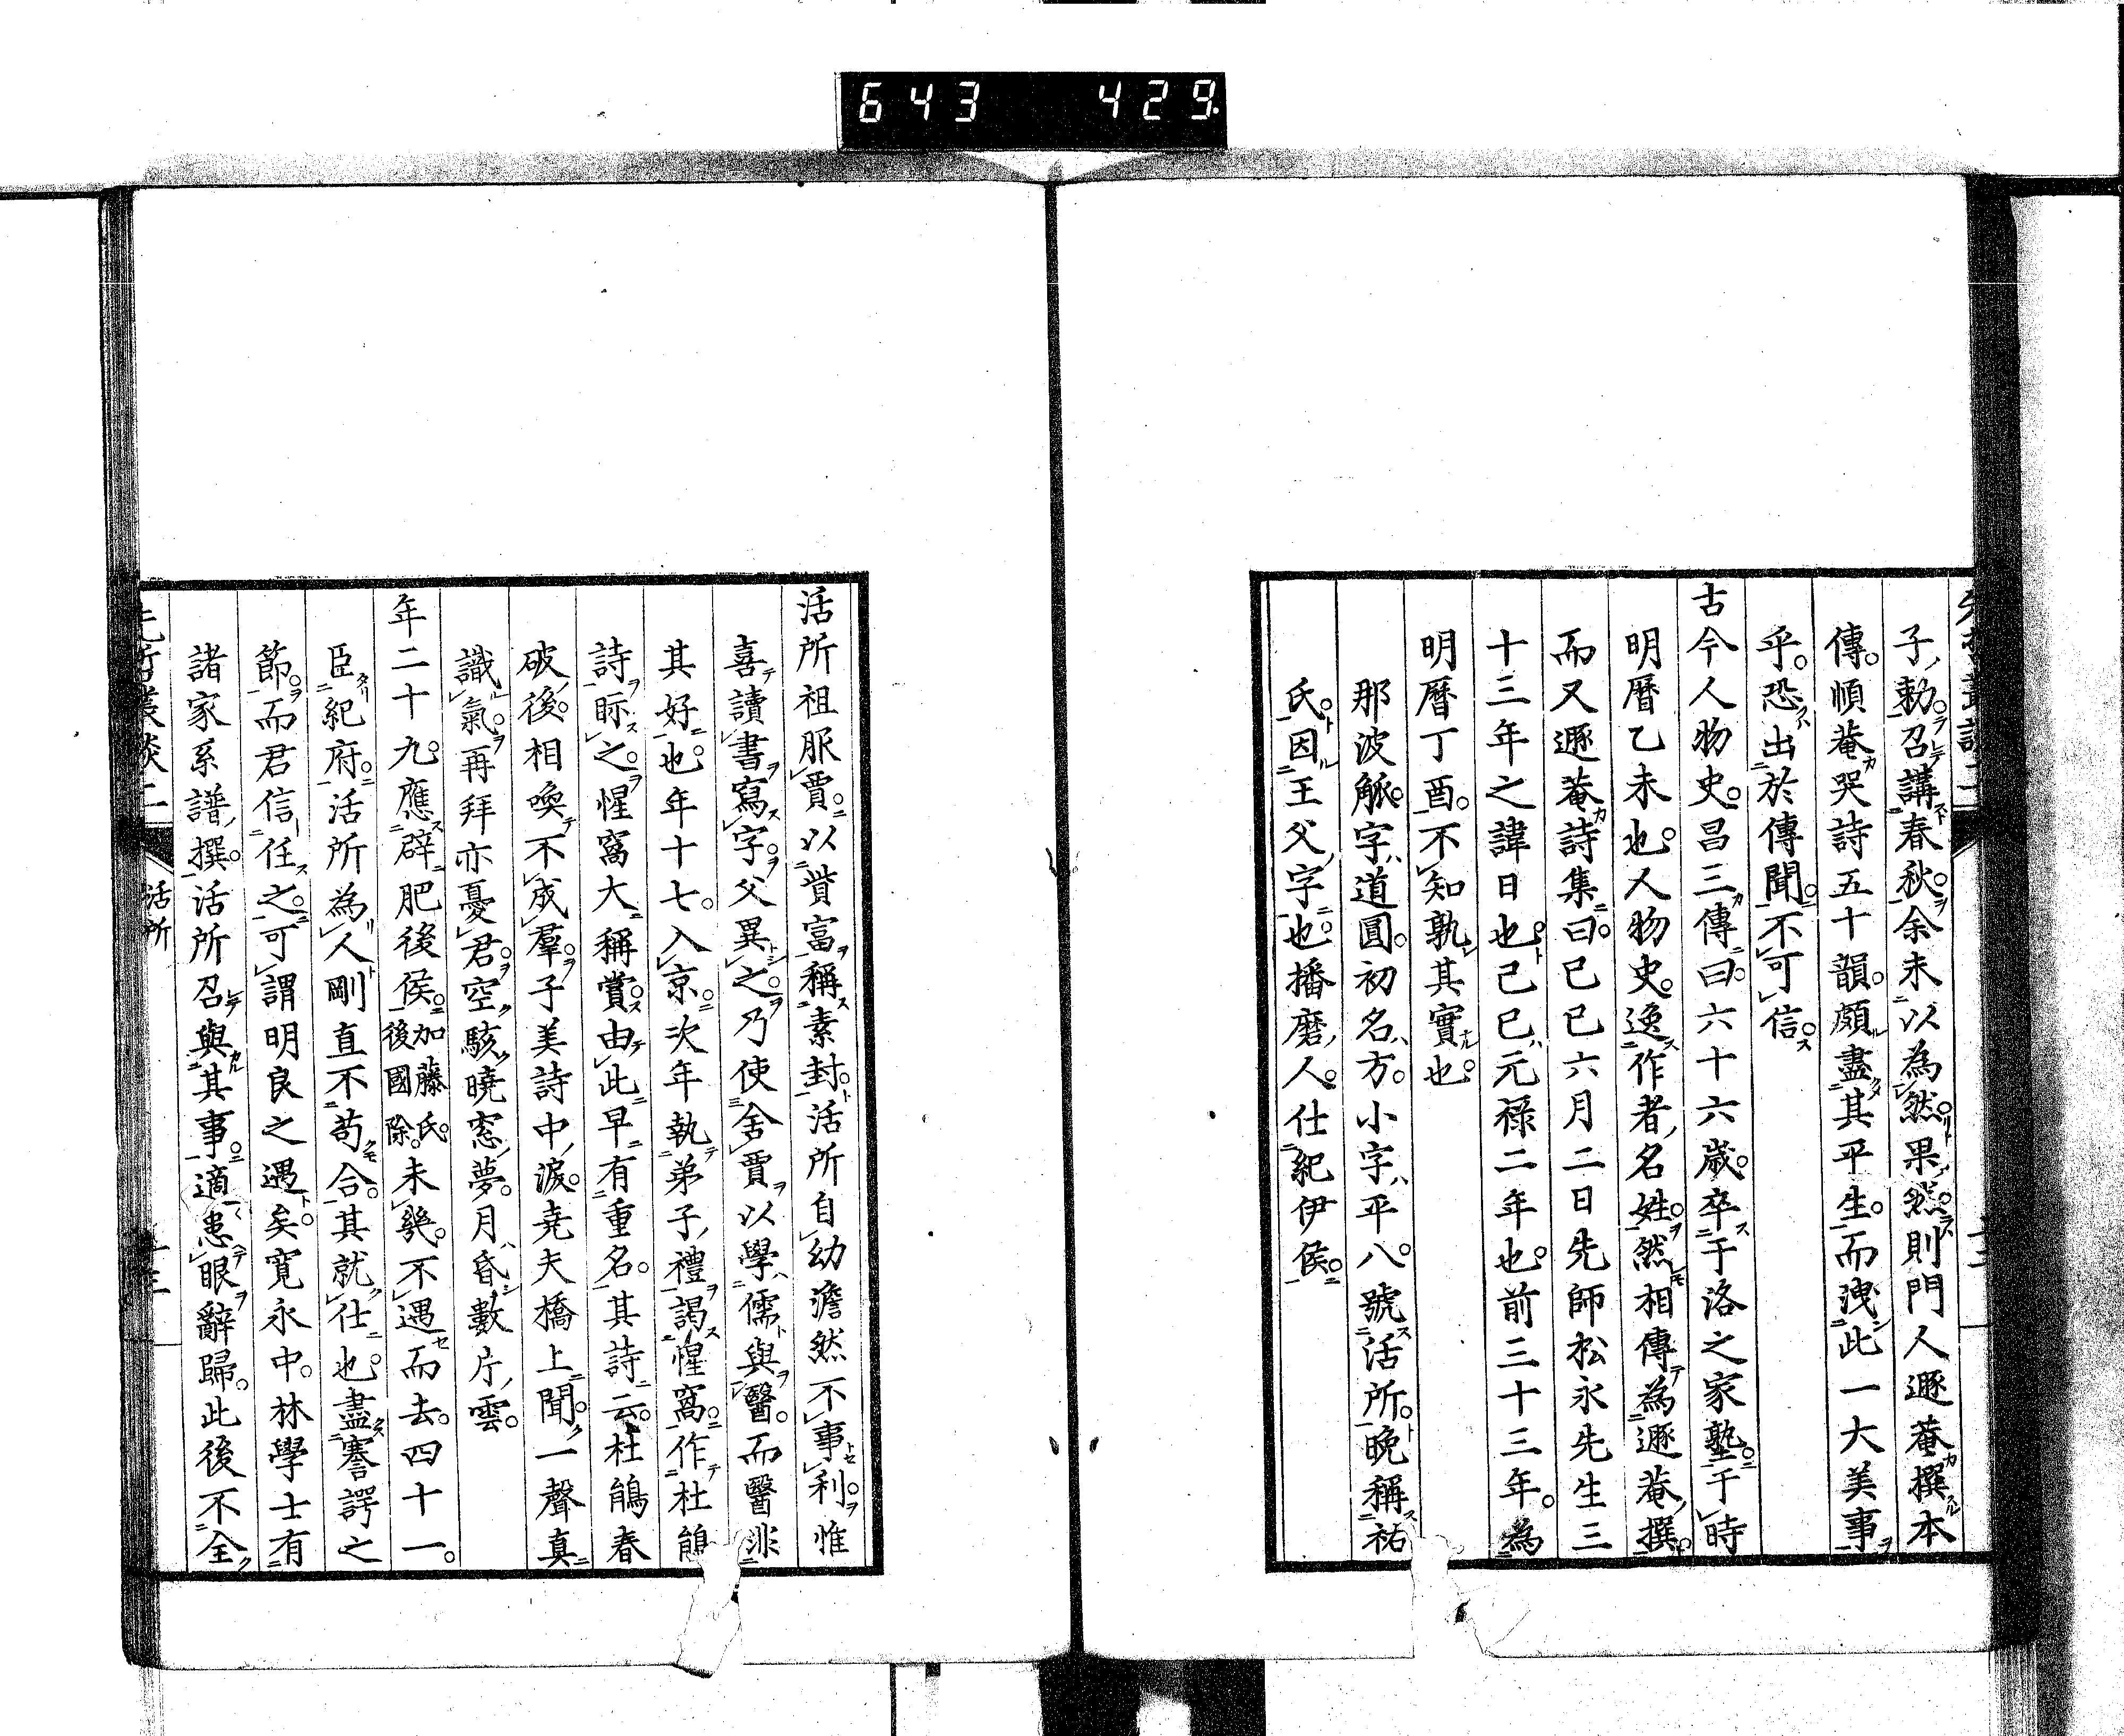 643 429
子勅召講春秋余未以為然果然則門人遯菴撰本
傳順菴哭詩五十韻頗盡其平生而洩此一大美事
乎恐出於傳聞不可信
古今人物史昌三傳曰六十六歳卒于洛之家塾于時
明曆乙未也人物史逸作者名姓然相傳為遯菴撰
而又遯菴詩集曰己巳六月二日先師松永先生三
十三年之諱日也己巳元禄二年也前三十三年為
明曆丁酉不知孰其實也
那波觚字道圓初名方小字平八號活所晩稱祐
氏因王父字也播磨人仕紀伊侯
活所祖服賈以貲富稱素封活所自幼澹然不事利惟
喜讀書寫字父異之乃使舍賈以學儒與醫而醫非
其好也年十七入京次年執弟子禮謁惺窩作杜鵑
詩眎之惺窩大稱賞由此早有重名其詩云杜鵑春
破後相喚不成羣子美詩中淚堯夫橋上聞一聲真
識氣再拜亦憂君空駭曉窓夢月昏數庁雲
年二十九應辟肥後侯加藤氏後國除未幾不遇而去四十一
臣紀府活所為人剛直不苟合其就仕也盡謇諤之
節而君信任之可謂明良之遇矣寛永中林學士有
諸家系譜撰活所召與其事適患眼辭歸此後不全
先哲叢談二
活所